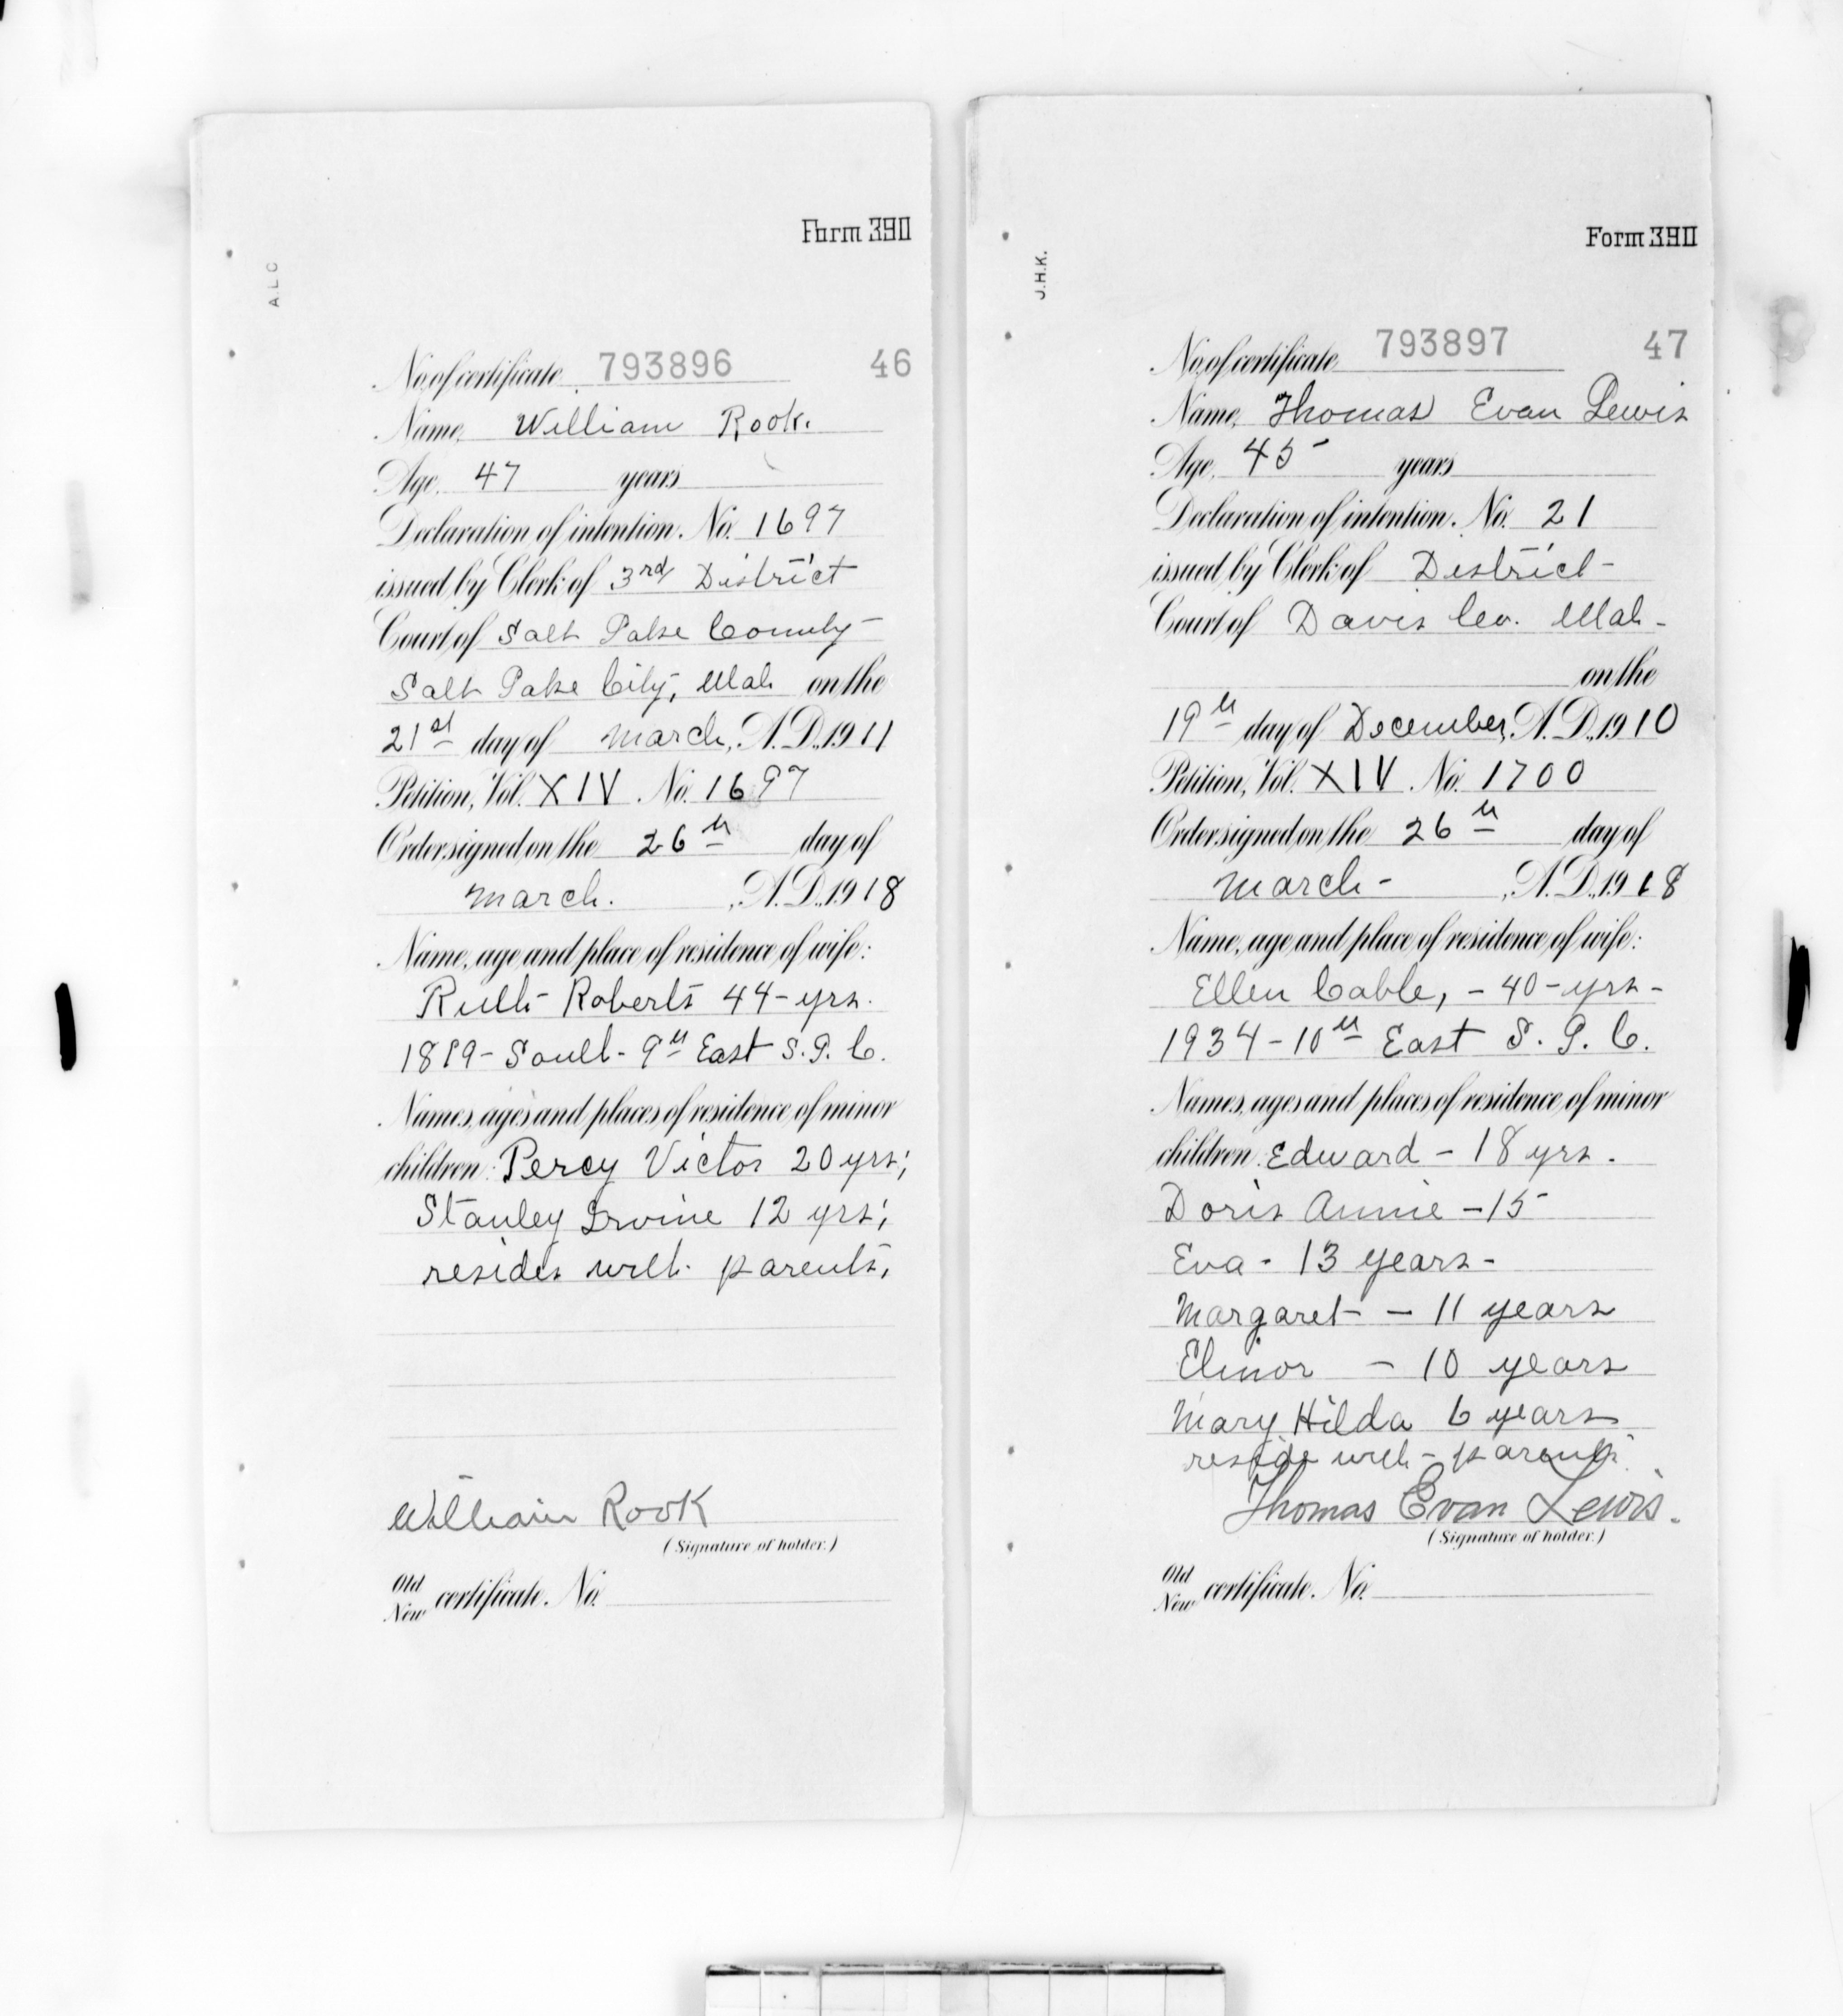 Form 390
A.L.C
No. of certificate 793896 46
Name William Rook.
Age 47 years
Declaration of intention. No. 1697
issued by Clerk of 3rd District
Court of Salt Lake County
Salt Lake City, Utah on the
21st day of March, A.D. 1911
Petition, Vol. XIV No. 1697
Order signed on the 26th day of
March. , A.D. 1918
Name, age and place of residence of wife:
Ruth Roberts 44-yrs.
South - 9th East S.L.C.
Names, ages and places of residence of minor
children: Percy Victor 20 yrs;
Stanley Irvine 12 yrs;
resides with parents,
William Rook
(Signature of holder.)
Old
New certificate. No.
Form 390
J.H.K.
No. of certificate 793897 47
Name, Thomas Evan Lewis
Age, 45 years
Declaration of intention. No. 21
issued by Clerk of District
Court of Davis Co. Utah
on the
19th day of December, A.D. 1910
Petition, Vol. XIV No. 1700
Order signed on the 26th day of
March - , A.D. 1918
Name, age and place of residence of wife:
Ellen Cable, - 40 - yrs -
1934 - 10th East S. L. C.
Names, ages and places of residence of minor
children: Edward - 18 yrs.
Doris Annie - 15
Eva - 13 years -
Margaret - 11 years
Elinor - 10 years
Mary Hilda 6 years
reside with - parents.
Thomas Evan Lewis.
(Signature of holder.)
Old
New certificate. No.